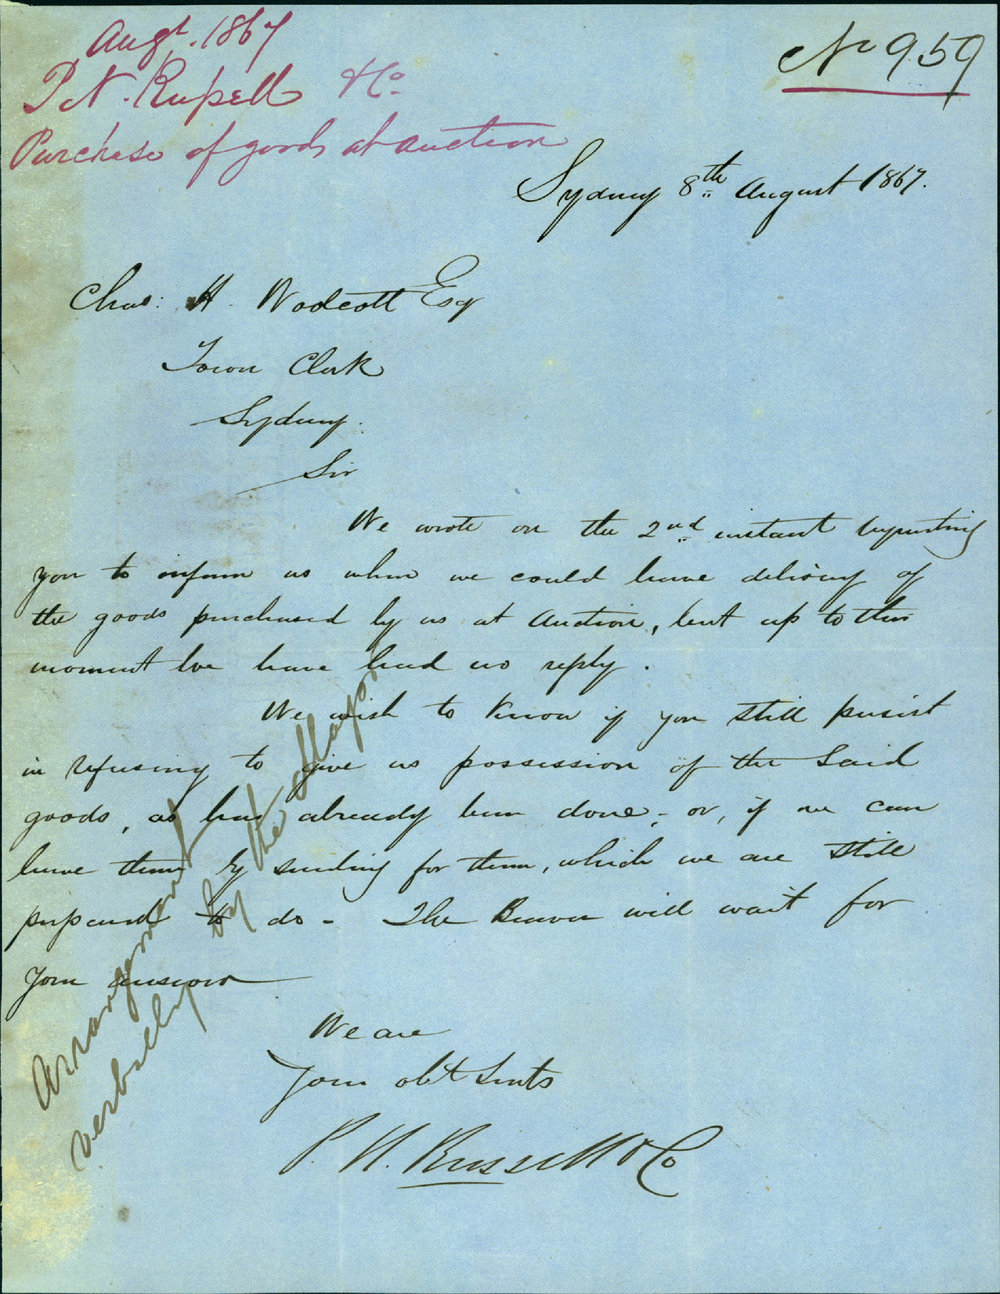 Augt. 1867
P. N. Russell & Co
Purchase of goods at Auction
No 959
Sydney 8th August 1867.
Chas: H. Wodcott Esq
Town Clerk
Sydney.
Sir
We wrote on the 2nd instant requesting
you to inform us when we could have delivery of
the goods purchased by us at Auction, but up to this
moment we have had no reply.
We wish to know if you still persist
in refusing to give us possession of the said
goods, as has already been done; or, if we can
have them by sending for them, which we are still
prepared to do - The Bearer will wait for
your answer
We are
Your obt Servts
P. N. Russell & Co
Arrangement
verbally by the Mayor